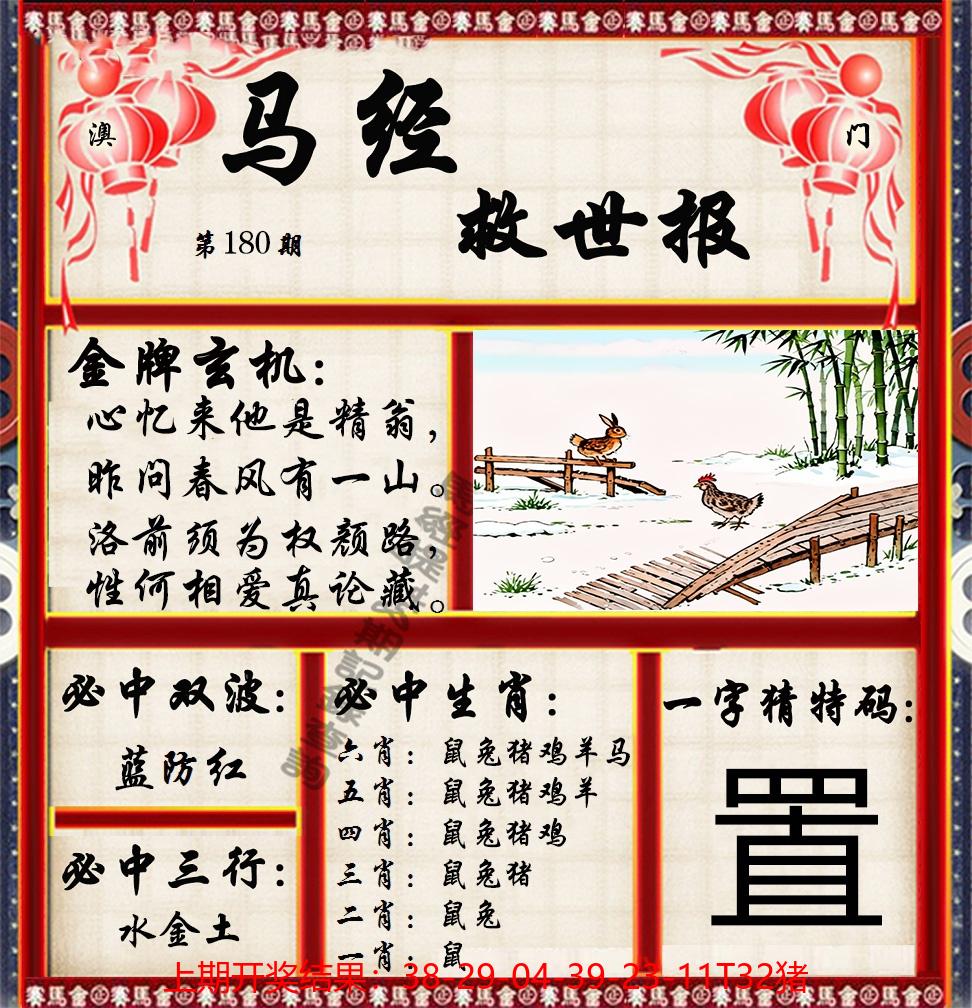 澳
门
马经
救世报
第180期
金牌玄机：
心忆来他是精翁，
昨问春风有一山。
洛前须为权颜路，
性何相爱真论藏。
必中双波：
蓝防红
必中三行：
水金土
必中生肖：
六肖：鼠兔猪鸡羊马
五肖：鼠兔猪鸡羊
四肖：鼠兔猪鸡
三肖：鼠兔猪
二肖：鼠兔
一肖：鼠
一字猜特码：
置
上期开奖结果：38-29-04-39-23-11T32猪